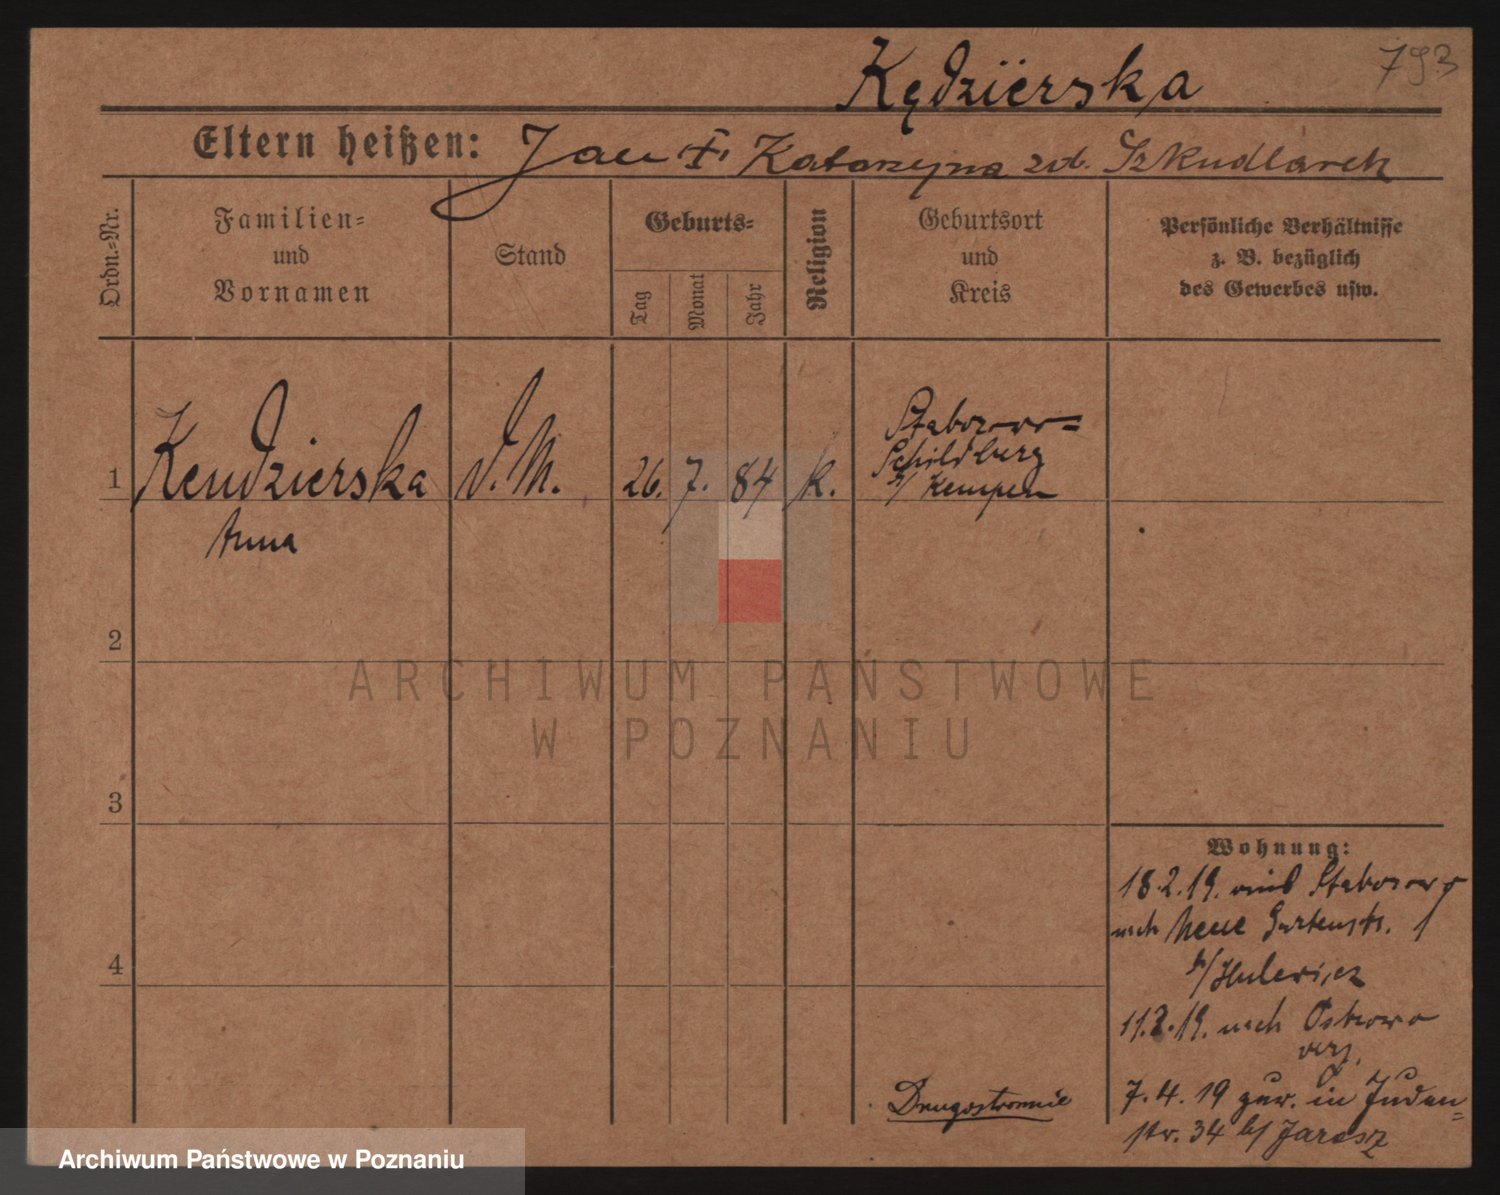 793
Kędzierska
Eltern heißen: Jan † Katarzyna zd. Szkudlarek
Ordn.=Nr.
Familien=
und
Vornamen
Stand
Geburts=
Tag
Monat
Jahr
Religion
Geburtsort
und
Kreis
Persönliche Verhältnisse
z. B. bezüglich
des Gewerbes usw.
1
Kendzierska
Anna
D. M.
26. 7. 84
k.
Schildberg
b/ Kempen
2
3
4
Wohnung:
18.2.19. aus
nach Neue Gartenstr. 1
b/
11.3.19. nach Ostrowo
verz.
7.4.19 zur. in Juden=
str. 34 b/ Jarosz
Drugostronnie
ARCHIWUM PAŃSTWOWE
W POZNANIU
Archiwum Państwowe w Poznaniu